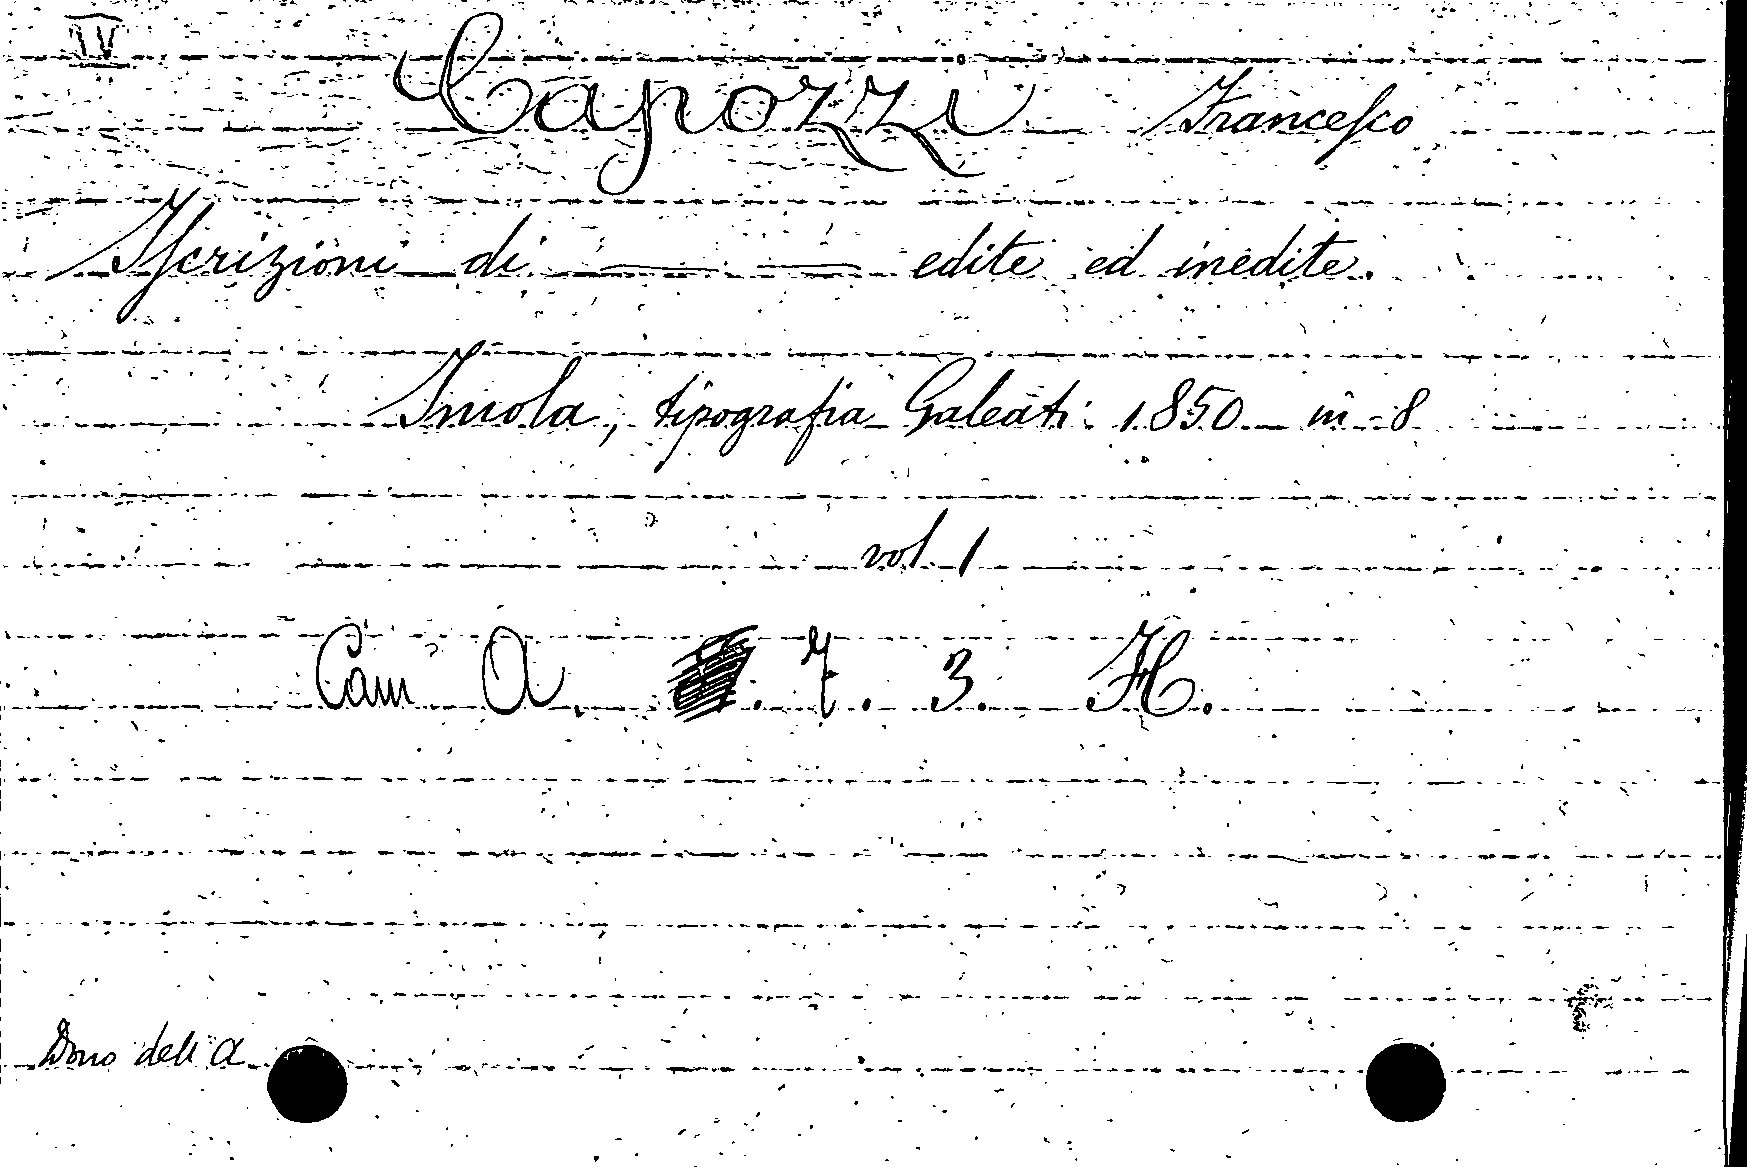 IV
Capozzi Francesco
Iscrizioni di — — edite ed inedite.
Imola, tipografia Galeati 1850 in-8
vol. 1
Cam A. . 7. 3. H.
Dono dell'A